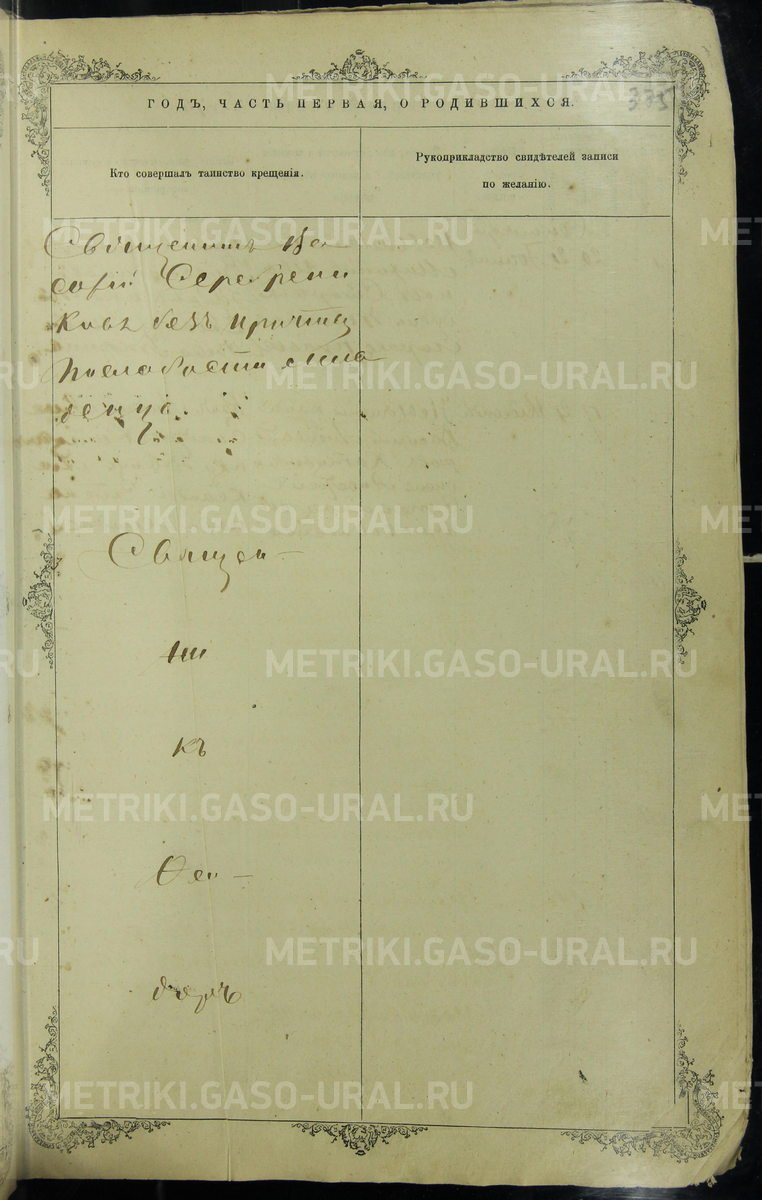 ГОДЪ, ЧАСТЬ ПЕРВАЯ, О РОДИВШИХСЯ.
335
Кто совершалъ таинство крещенія.
Рукоприкладство свидѣтелей записи
по желанію.
Священникъ
Серебрени
ковъ безъ причта
по слабости мла
денца.
Священ-
ни
къ
Ѳео-
доръ
METRIKI.GASO-URAL.RU